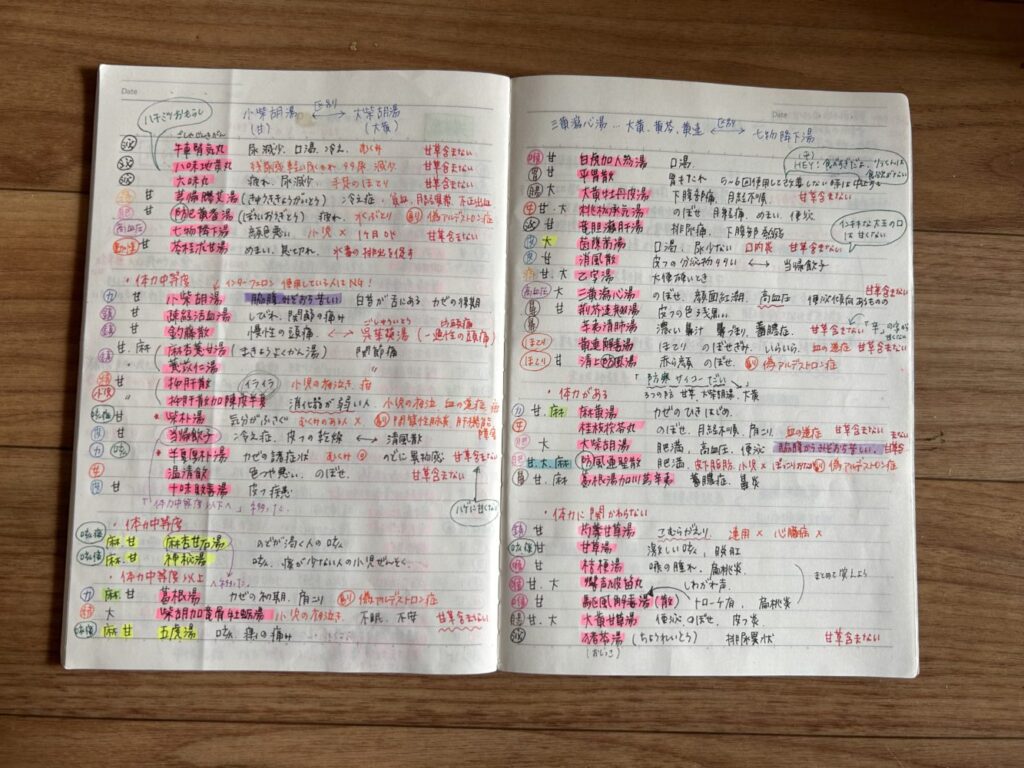 Date
区別
小柴胡湯 ←→ 大柴胡湯
(甘) (大黄)
ハチミツおもらし
ごしゃじんきがん
泌 牛車腎気丸 尿減少、口渇、冷え、むくみ 甘草含まない
泌 八味地黄丸 甘草含まない
泌 六味丸 疲れ、尿減少、手足のほてり 甘草含まない
甘 芎帰膠艾湯 (きゅうききょうがいとう) 冷え症 不正出血
甘 防已黄耆湯 (ぼういおうぎとう) 疲れ、水ぶとり 偽アルデステロン症
高血圧 七物降下湯 顔色悪い 小児× 甘草含まない
甘 苓桂朮甘湯 めまい、息切れ、水毒の排出を促す
・体力中等度 インターフェロン使用している人はNG!
カ 甘 小柴胡湯 脇腹みぞおち苦しい 白苔が舌にある カゼの後期
鎮 疎経活血湯 しびれ、関節の痛み
鎮 釣藤散 慢性の頭痛 ←→ 呉茱萸湯 (一過性の頭痛)
ごしゅゆとう
甘、麻 麻杏薏甘湯 (まきょうよくかん湯) 関節痛
薏苡仁湯 〃
甘 抑肝散 イライラ 小児の夜泣き、疳
小児 〃 抑肝散加陳皮半夏 消化器が弱い人 小児の夜泣 血の道症
咳痰 甘 柴朴湯 気分がふさぐ むくみのある人×
甘 当帰飲子 冷え症、皮フの乾燥 ←→ 消風散
カ 咳 半夏厚朴湯 カゼの諸症状 のどに異物感 甘草含まない
温清飲 色つや悪い、のぼせ、 甘草含まない
甘 十味敗毒湯 皮フ疾患
「体力中等度以下へ」移った
ハゲに甘くない
・体力中等度
咳痰 麻 甘 麻杏甘石湯 のどが渇く人の咳
咳痰 麻、甘 神秘湯 咳、痰が少ない人 小児ぜんそく、
・体力中等度以上
カ 麻 甘 葛根湯 カゼの初期、肩こり 偽アルデステロン症
大 柴胡加竜骨牡蛎湯 小児の夜泣き、不眠、不安 甘草含まない
麻 甘 五虎湯 咳
Date
三黄瀉心湯…大黄、黄芩、黄連 ←→ 七物降下湯
区別
喉 甘 白虎加人参湯 口渇、
胃 甘 平胃散 胃もたれ 5~6回使用して改善しない時は中止
腸 大 大黄牡丹皮湯 下腹部痛、月経不順 甘草含まない
甘、大 桃核承気湯 のぼせ 月経痛、めまい、便泌
泌 甘 竜胆瀉肝湯 排尿痛、下腹部
大 茵蔯蒿湯 口渇、尿少ない 口内炎 甘草含まない
甘 消風散 皮フの分泌物多い ←→ 当帰飲子
甘、大 乙字湯 大便硬いとき
高血圧 大 三黄瀉心湯 のぼせ、顔面紅潮、高血圧 便泌傾向あるもの 甘草含まない
鼻 荊芥連翹湯 皮フの色浅黒い
鼻 辛夷清肺湯 濃い鼻汁 鼻づまり 蓄膿症、甘草含まない
ほてり 黄連解毒湯 ほてり のぼせぎみ、いらいら、血の道症 甘草含まない
ほてり 甘 清上防風湯 赤ら顔 のぼせ、 偽アルデステロン症
・体力がある
カ 甘、麻 麻黄湯 カゼのひきはじめ、
桂枝茯苓丸 のぼせ、月経不順、肩こり 血の道症 甘草含まない
大 大柴胡湯 肥満、高血圧、便泌 脇腹からみぞおち苦しい、
甘、大、麻 防風通聖散 肥満、皮下脂肪、小児× 偽アルデステロン症
鼻 甘、麻 葛根湯加川芎辛夷 蓄膿症、鼻炎
・体力に関わらない
鎮 甘 芍薬甘草湯 こむらがえり 連用× 心臓病×
咳痰 甘 甘草湯 激しい咳、脱肛
喉 甘 桔梗湯 喉の腫れ、扁桃炎
甘、大 響声破笛丸 しわがれ声、
まとめて覚えよう
甘 駆風解毒湯 (散) トローチ有、扁桃炎
甘、大 大黄甘草湯 便泌、のぼせ、皮フ炎
泌 猪苓湯 (ちょうれいとう) 排尿異常 甘草含まない
(おしっこ)